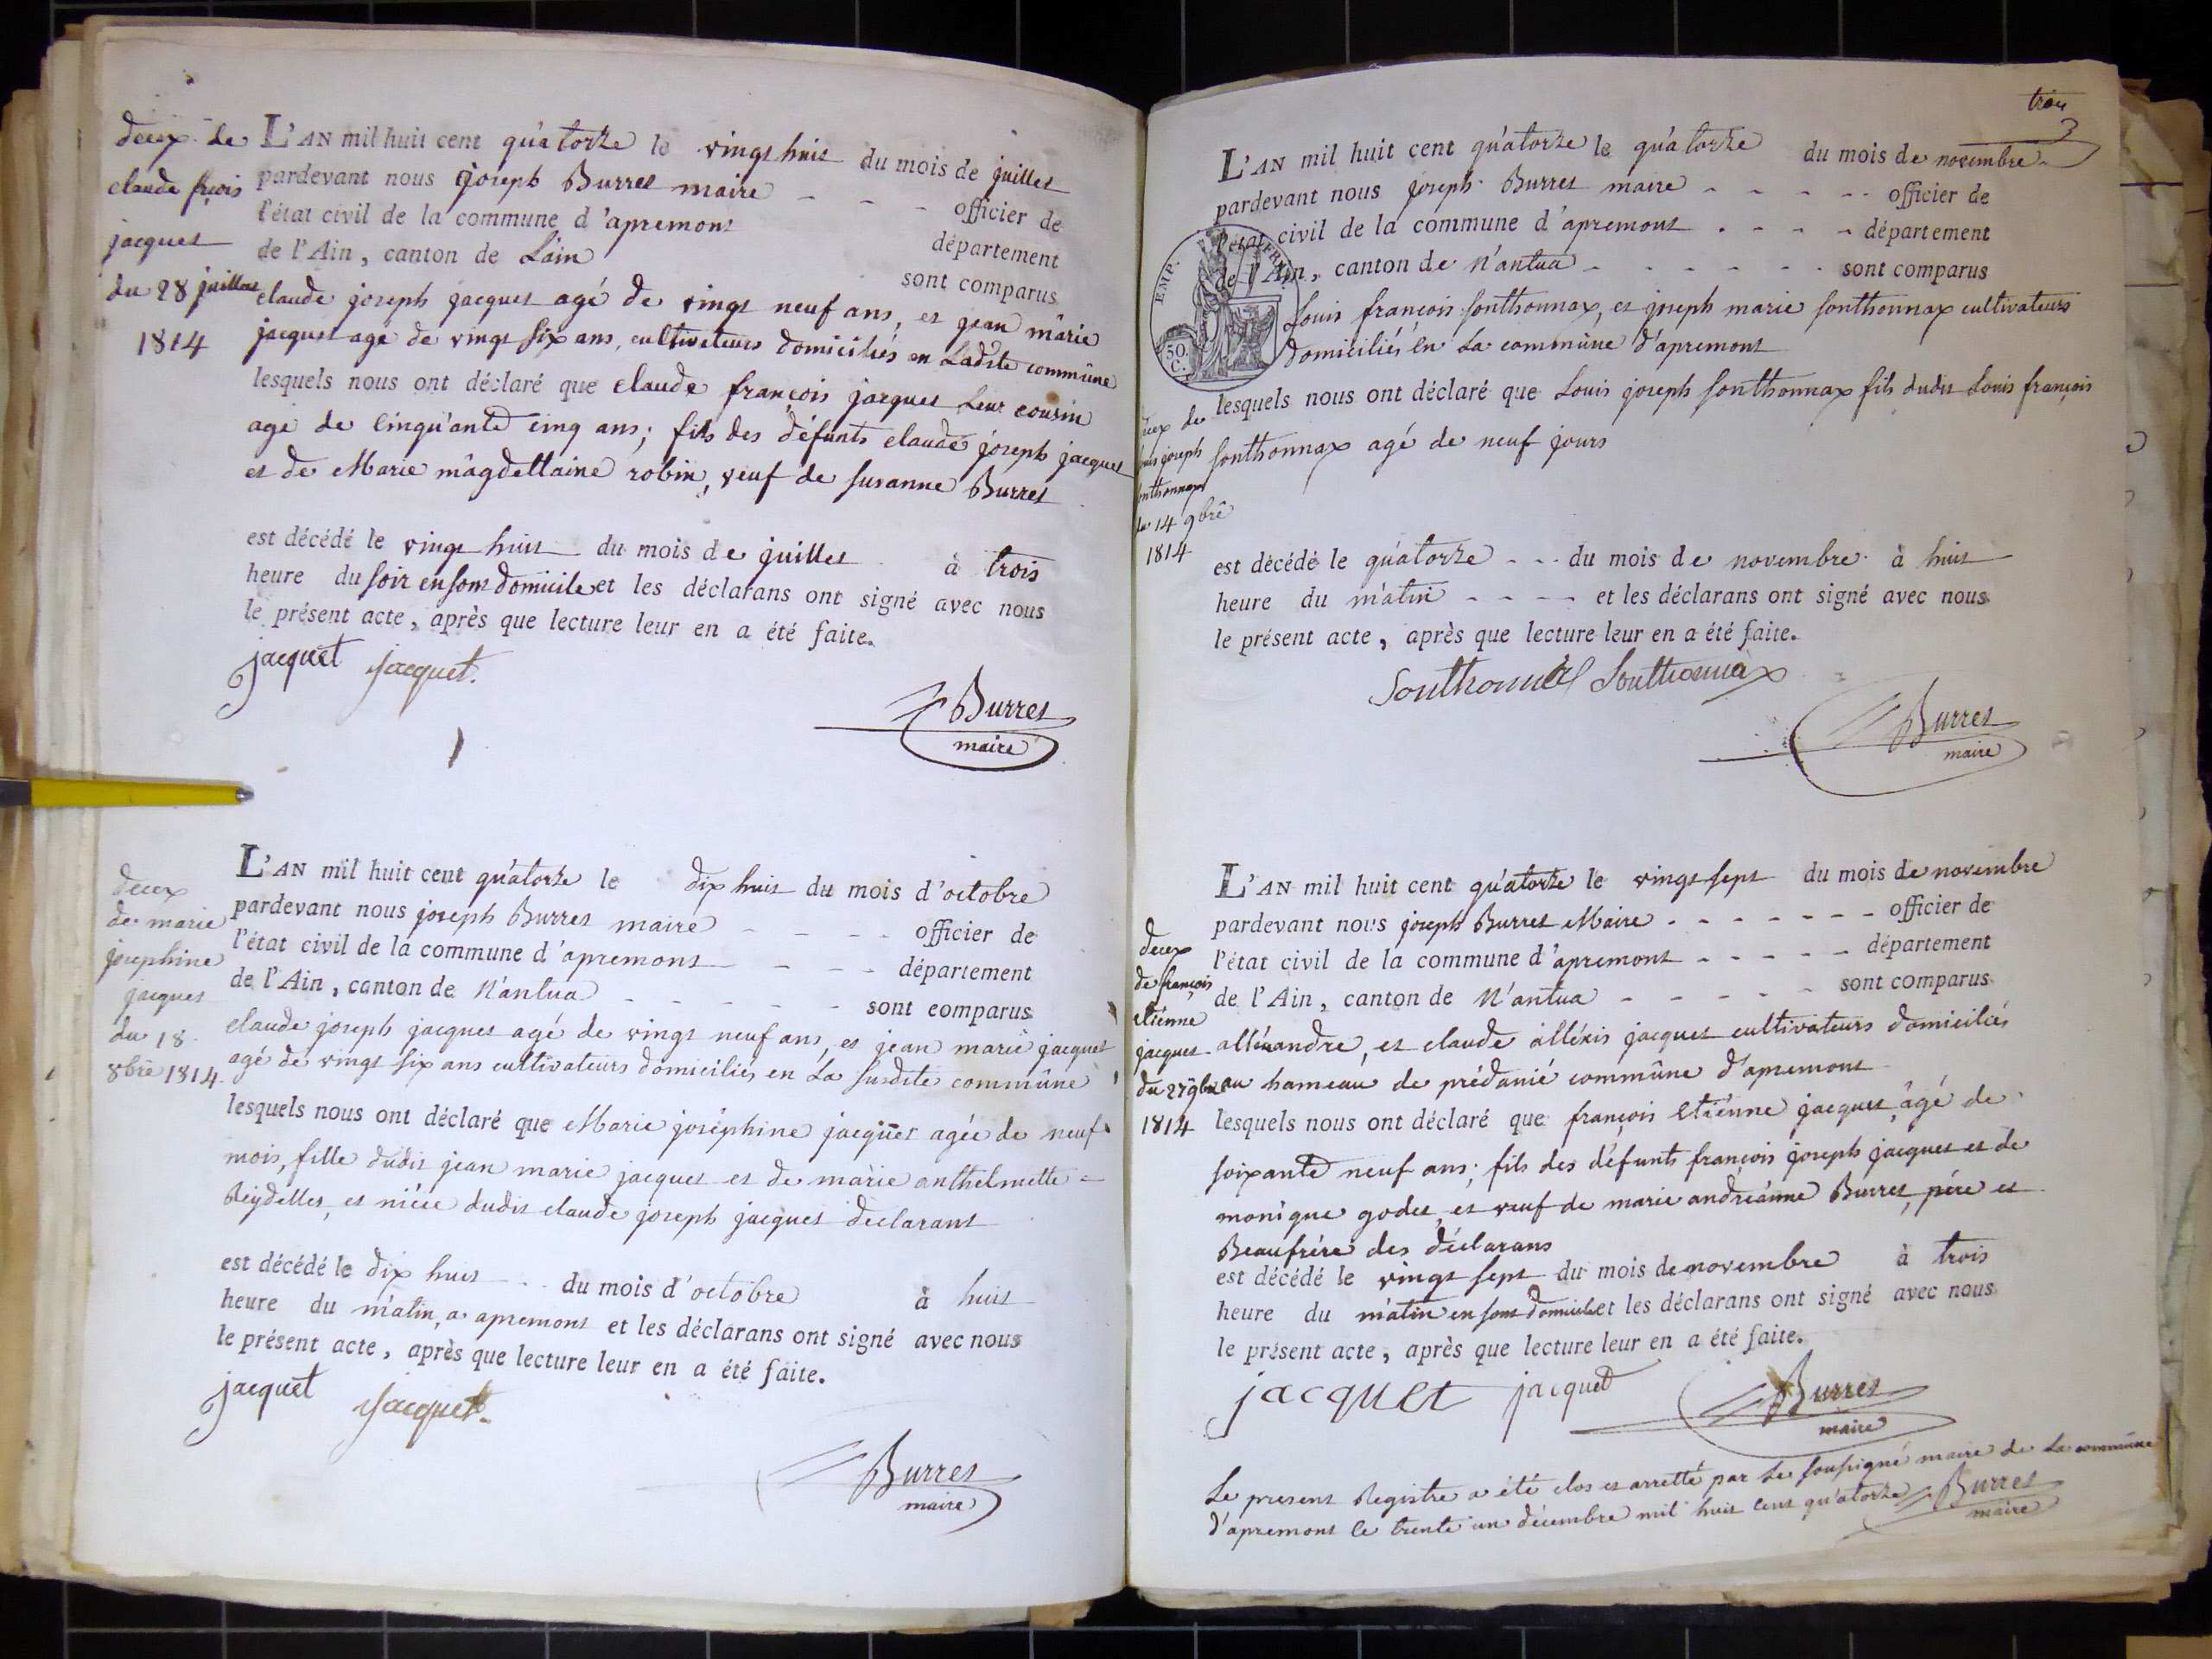 deux de
claude frçois
jacquet
du 28 juillet
1814
L'AN mil huit cent quatorze le vingt huit du mois de juillet
pardevant nous joseph Burret maire - - - officier de
l'état civil de la commune d'apremont département
de l'Ain, canton de L'ain sont comparus
claude joseph jacquet agé de vingt neuf ans, et jean marie
jacquet agé de vingt six ans, cultivateurs domiciliés en Ladite commune
lesquels nous ont déclaré que claude françois jacquet Leur cousin
agé de Cinquante cinq ans; fils des défunts claude joseph jacquet
et de Marie magdellaine robin, veuf de susanne Burret
est décédé le vingt huit du mois de juillet à trois
heure du soir en sont domicile et les déclarans ont signé avec nous
le présent acte, après que lecture leur en a été faite.
jacquet jacquet.
Burret
maire
deux
de marie
josephine
jacquet
du 18
8bre 1814
L'AN mil huit cent quatorze le dix huit du mois d'octobre
pardevant nous joseph Burret maire - - - - officier de
l'état civil de la commune d'apremont - - - département
de l'Ain, canton de Nantua - - - - - sont comparus
claude joseph jacquet agé de vingt neuf ans, et jean marie jacquet
agé de vingt six ans cultivateurs domiciliés en La susdite commune
lesquels nous ont déclaré que Marie joséphine jacquet agée de neuf
mois, fille dudit jean marie jacquet et de marie anthelmette =
Reydellet, et niéce dudit claude joseph jacquet déclarant
est décédé le dix huit - - du mois d'octobre à huit
heure du matin, a apremont et les déclarans ont signé avec nous
le présent acte, après que lecture leur en a été faite.
jacquet jacquet.
Burret
maire
trois
3
L'AN mil huit cent quatorze le quatorze du mois de novembre
pardevant nous joseph Burret maire - - - - - officier de
l'état civil de la commune d'apremont - - - - département
de l'Ain, canton de Nantua - - - - - - sont comparus
EMP. FR
50.
C.
Louis françois sonthonnax, et joseph marie sonthonnax cultivateurs
domiciliés en La commune d'apremont
lesquels nous ont déclaré que Louis joseph sonthonnax fils dudit Louis françois
sonthonnax agé de neuf jours
joseph
du 14 9bre
1814
est décédé le quatorze - - - du mois de novembre à huit
heure du matin - - - - et les déclarans ont signé avec nous
le présent acte, après que lecture leur en a été faite.
Sonthonnax Sonthonnax
Burret
maire
deux
de françois
etiénne
jacquet
du 27 9bre
1814
L'AN mil huit cent quatorze le vingt sept du mois de novembre
pardevant nous joseph Burret Maire - - - - - - - officier de
l'état civil de la commune d'apremont - - - - - département
de l'Ain, canton de Nantua - - - - - sont comparus
et claude alléxis jacquet cultivateurs domiciliés
au hameau de prédanié commune d'apremont
lesquels nous ont déclaré que françois Etiénne jacquet, âgé de
soixante neuf ans; fils des défunts françois joseph jacquet et de
monique godet, et veuf de marie andréanne Burret, pére et
Beaufrére des déclarans
est décédé le vingt sept du mois de novembre à trois
heure du matin en sont domicile et les déclarans ont signé avec nous
le présent acte, après que lecture leur en a été faite.
jacquet jacquet Burret
maire
Le present Registre a été clos et arretté par Le soussigné maire de La commune
d'apremont le trente un décembre mil huit cent quatorze Burret
maire